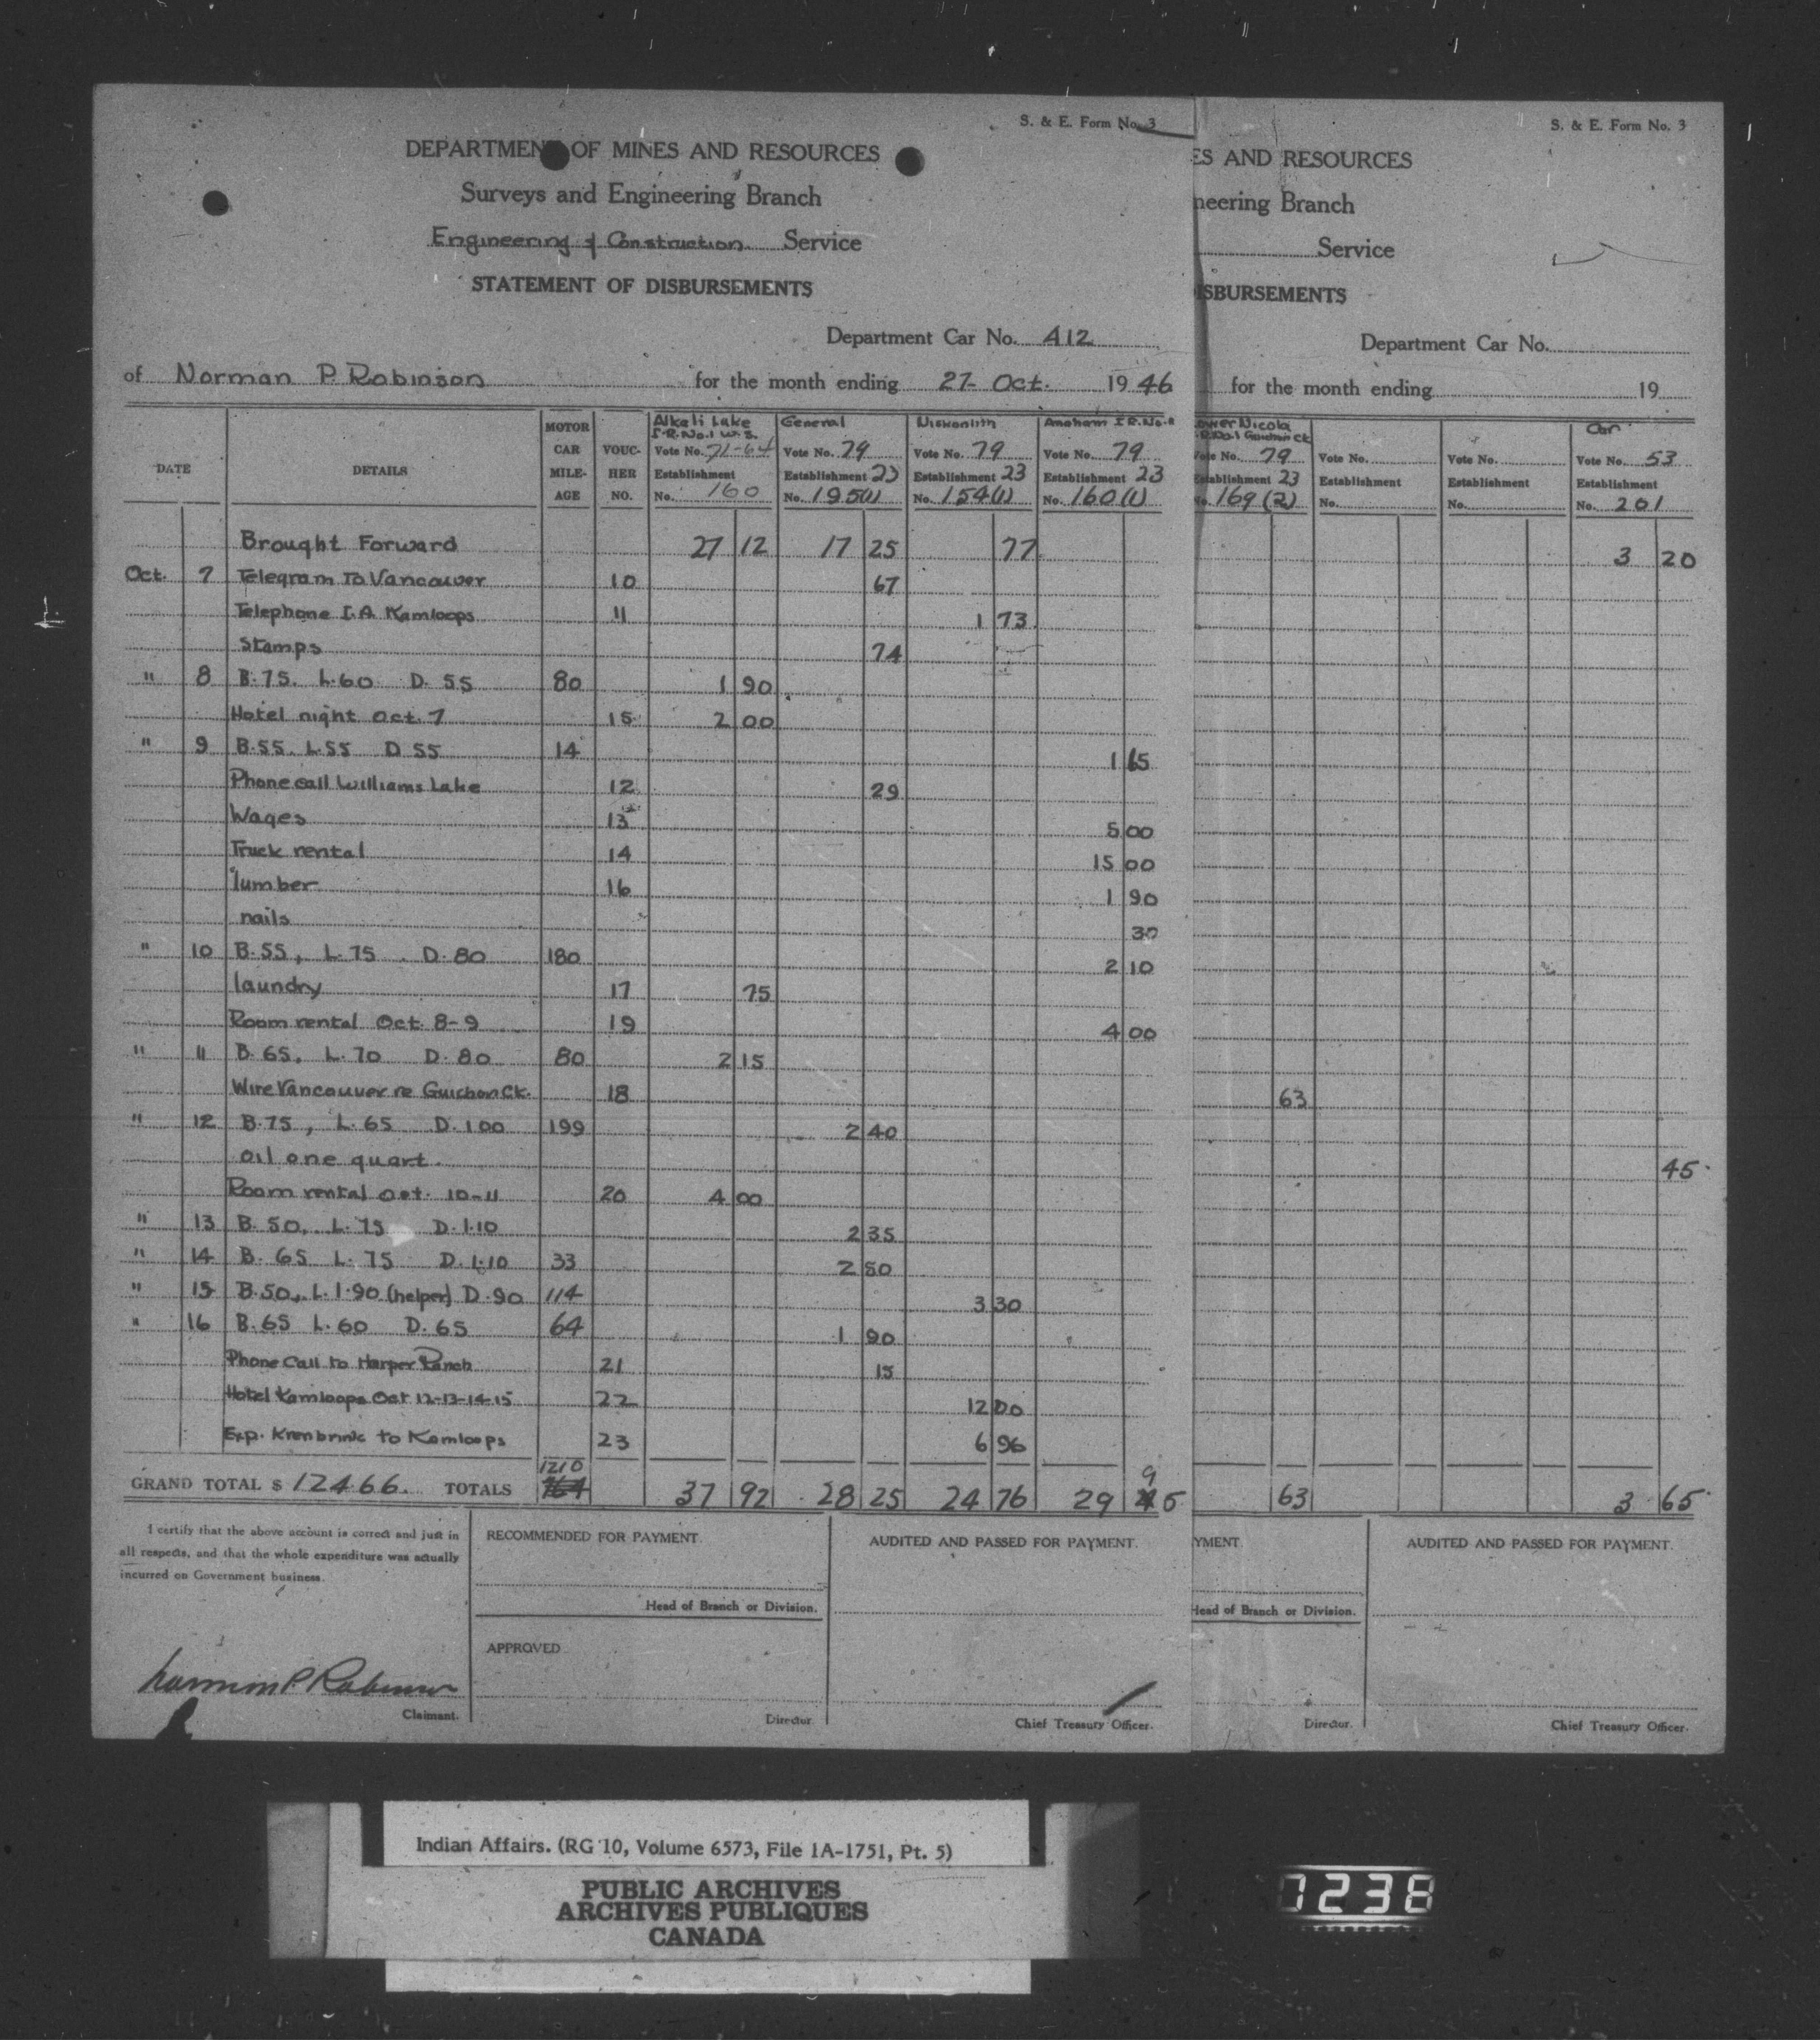 S. & E. Form No. 3
DEPARTMENT OF MINES AND RESOURCES
Surveys and Engineering Branch
Engineering & Construction Service
STATEMENT OF DISBURSEMENTS
Department Car No. 412
of Norman P. Robinson for the month ending 27 Oct. 1946
S. & E. Form No. 3
ES AND RESOURCES
neering Branch
Service
ISBURSEMENTS
Department Car No.
for the month ending 19
DATE DETAILS MOTOR CAR MILE-AGE VOUC-HER NO.
Alkali Lake I.R. No. 1 W.S. Vote No. 71-64 Establishment No. 160
General Vote No. 79 Establishment 23 No. 195(1)
Niskonlith Vote No. 79 Establishment 23 No. 154(1)
Anaham I.R. No. Vote No. 79 Establishment 23 No. 160(1)
ower Nicola No. 1 Guichon Ck Vote No. 79 Establishment 23 No. 169(2)
Vote No. Establishment No.
Vote No. Establishment No.
Car Vote No. 53 Establishment No. 201
Brought Forward 27 12 17 25 77 3 20
Oct. 7 Telegram To Vancouver 10 67
Telephone I.A. Kamloops 11 1 73
Stamps 74
" 8 B.75. L.60 D. 55 80 1 90
Hotel night Oct. 7 15 2 00
" 9 B.55. L.55 D 55 14 1 65
Phone call Williams Lake 12 29
Wages 13 5 00
Truck rental 14 15 00
lumber 16 1 90
nails 30
" 10 B.55, L.75. D.80 180 2 10
laundry 17 75
Room rental Oct. 8-9 19 4 00
" 11 B.65, L.70 D.80 80 2 15
Wire Vancouver re Guichon Ck. 18 63
" 12 B.75, L.65 D.1.00 199 2 40
oil one quart. 45
Room rental Oct. 10-11 20 4 00
" 13 B.50, L.75 D.1.10 2 35
" 14 B. 65 L. 75 D. 1.10 33 2 50
" 15 B.50, L.1.90 (helper) D.90 114 3 30
" 16 B.65 L.60 D.65 64 1 90
Phone Call to Harper Ranch 21 15
Hotel Kamloops Oct 12-13-14-15 22 12 00
Exp. Krenbrink to Kamloops 23 6 96
1210
GRAND TOTAL $ 124.66. TOTALS 764 37 92 28 25 24 76 29 95 63 3 65
I certify that the above account is correct and just in
all respects, and that the whole expenditure was actually
incurred on Government business.
Norman P. Robinson
Claimant.
RECOMMENDED FOR PAYMENT.
Head of Branch or Division.
APPROVED
Director.
AUDITED AND PASSED FOR PAYMENT.
Chief Treasury Officer.
YMENT.
Head of Branch or Division.
Director.
AUDITED AND PASSED FOR PAYMENT.
Chief Treasury Officer.
Indian Affairs. (RG 10, Volume 6573, File 1A-1751, Pt. 5)
PUBLIC ARCHIVES
ARCHIVES PUBLIQUES
CANADA
1238